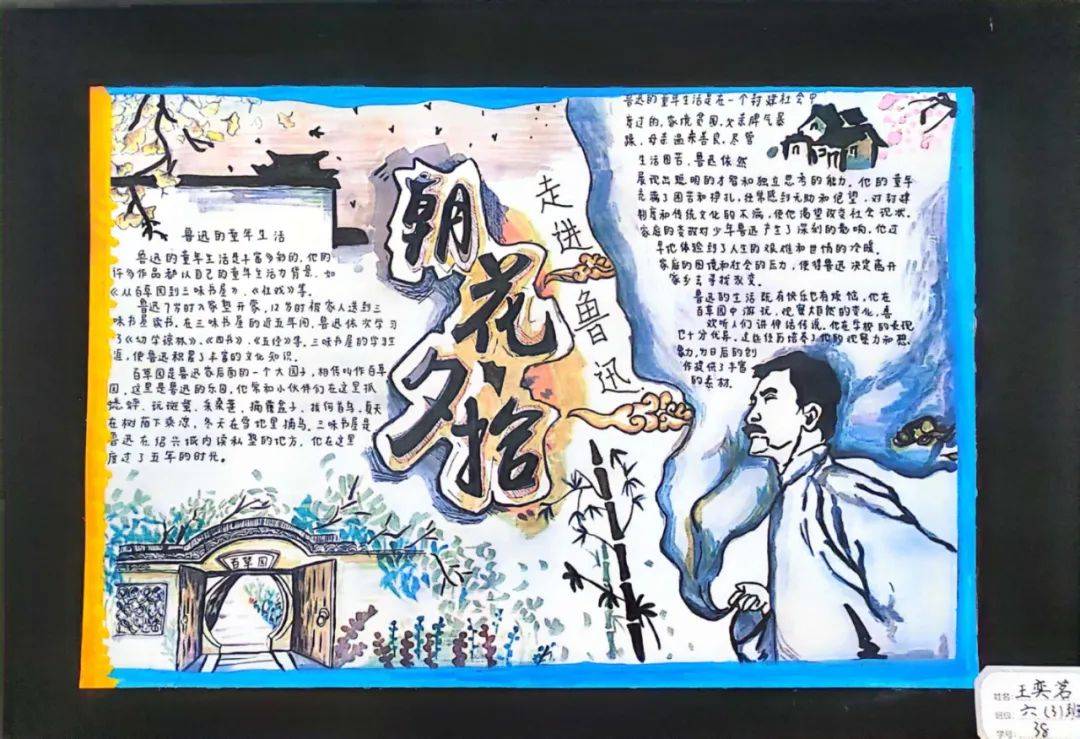 鲁迅的童年生活
鲁迅的童年生活是丰富多彩的,他的
许多作品都以自己的童年生活为背景,如
《从百草园到三味书屋》、《社戏》等。
鲁迅7岁时入家塾开蒙,12岁时被家人送到三
味书屋读书,在三味书屋的近五年间,鲁迅依次学习
了《幼学琼林》、《四书》、《五经》等,三味书屋的学习生
涯,使鲁迅积累了丰富的文化知识。
百草园是鲁迅家后面的一个大园子,相传叫作百草
园,这里是鲁迅的乐园,他常和小伙伴们在这里抓
蟋蟀、玩斑蝥、采桑葚、摘覆盆子、找何首乌,夏天
在树荫下乘凉,冬天在雪地里捕鸟,三味书屋是
鲁迅在绍兴城内读私塾的地方,他在这里
度过了五年的时光。
百草园
朝花夕拾
走进鲁迅
鲁迅的童年生活是在一个封建社会中
度过的,家境贫困,父亲脾气暴
躁,母亲温柔善良,尽管
生活困苦,鲁迅依然
展现出聪明的才智和独立思考的能力,他的童年
充满了困苦和挣扎,经常感到无助和绝望,对封建
制度和传统文化的不满,使他渴望改变社会现状,
家庭的变故对少年鲁迅产生了深刻的影响,他过
早地体验到了人生的艰难和世情的冷暖,
家庭的困境和社会的压力,使得鲁迅决定离开
家乡去寻找改变。
鲁迅的生活既有快乐也有烦恼,他在
百草园中游玩,观察大自然的变化,喜
欢听人们讲神话传说,他在学校的表现
也十分优异,这些经历培养了他的观察力和想
象力,为日后的创
作提供了丰富
的素材。
姓名:王奕茗
班级:六(3)班
学号:38